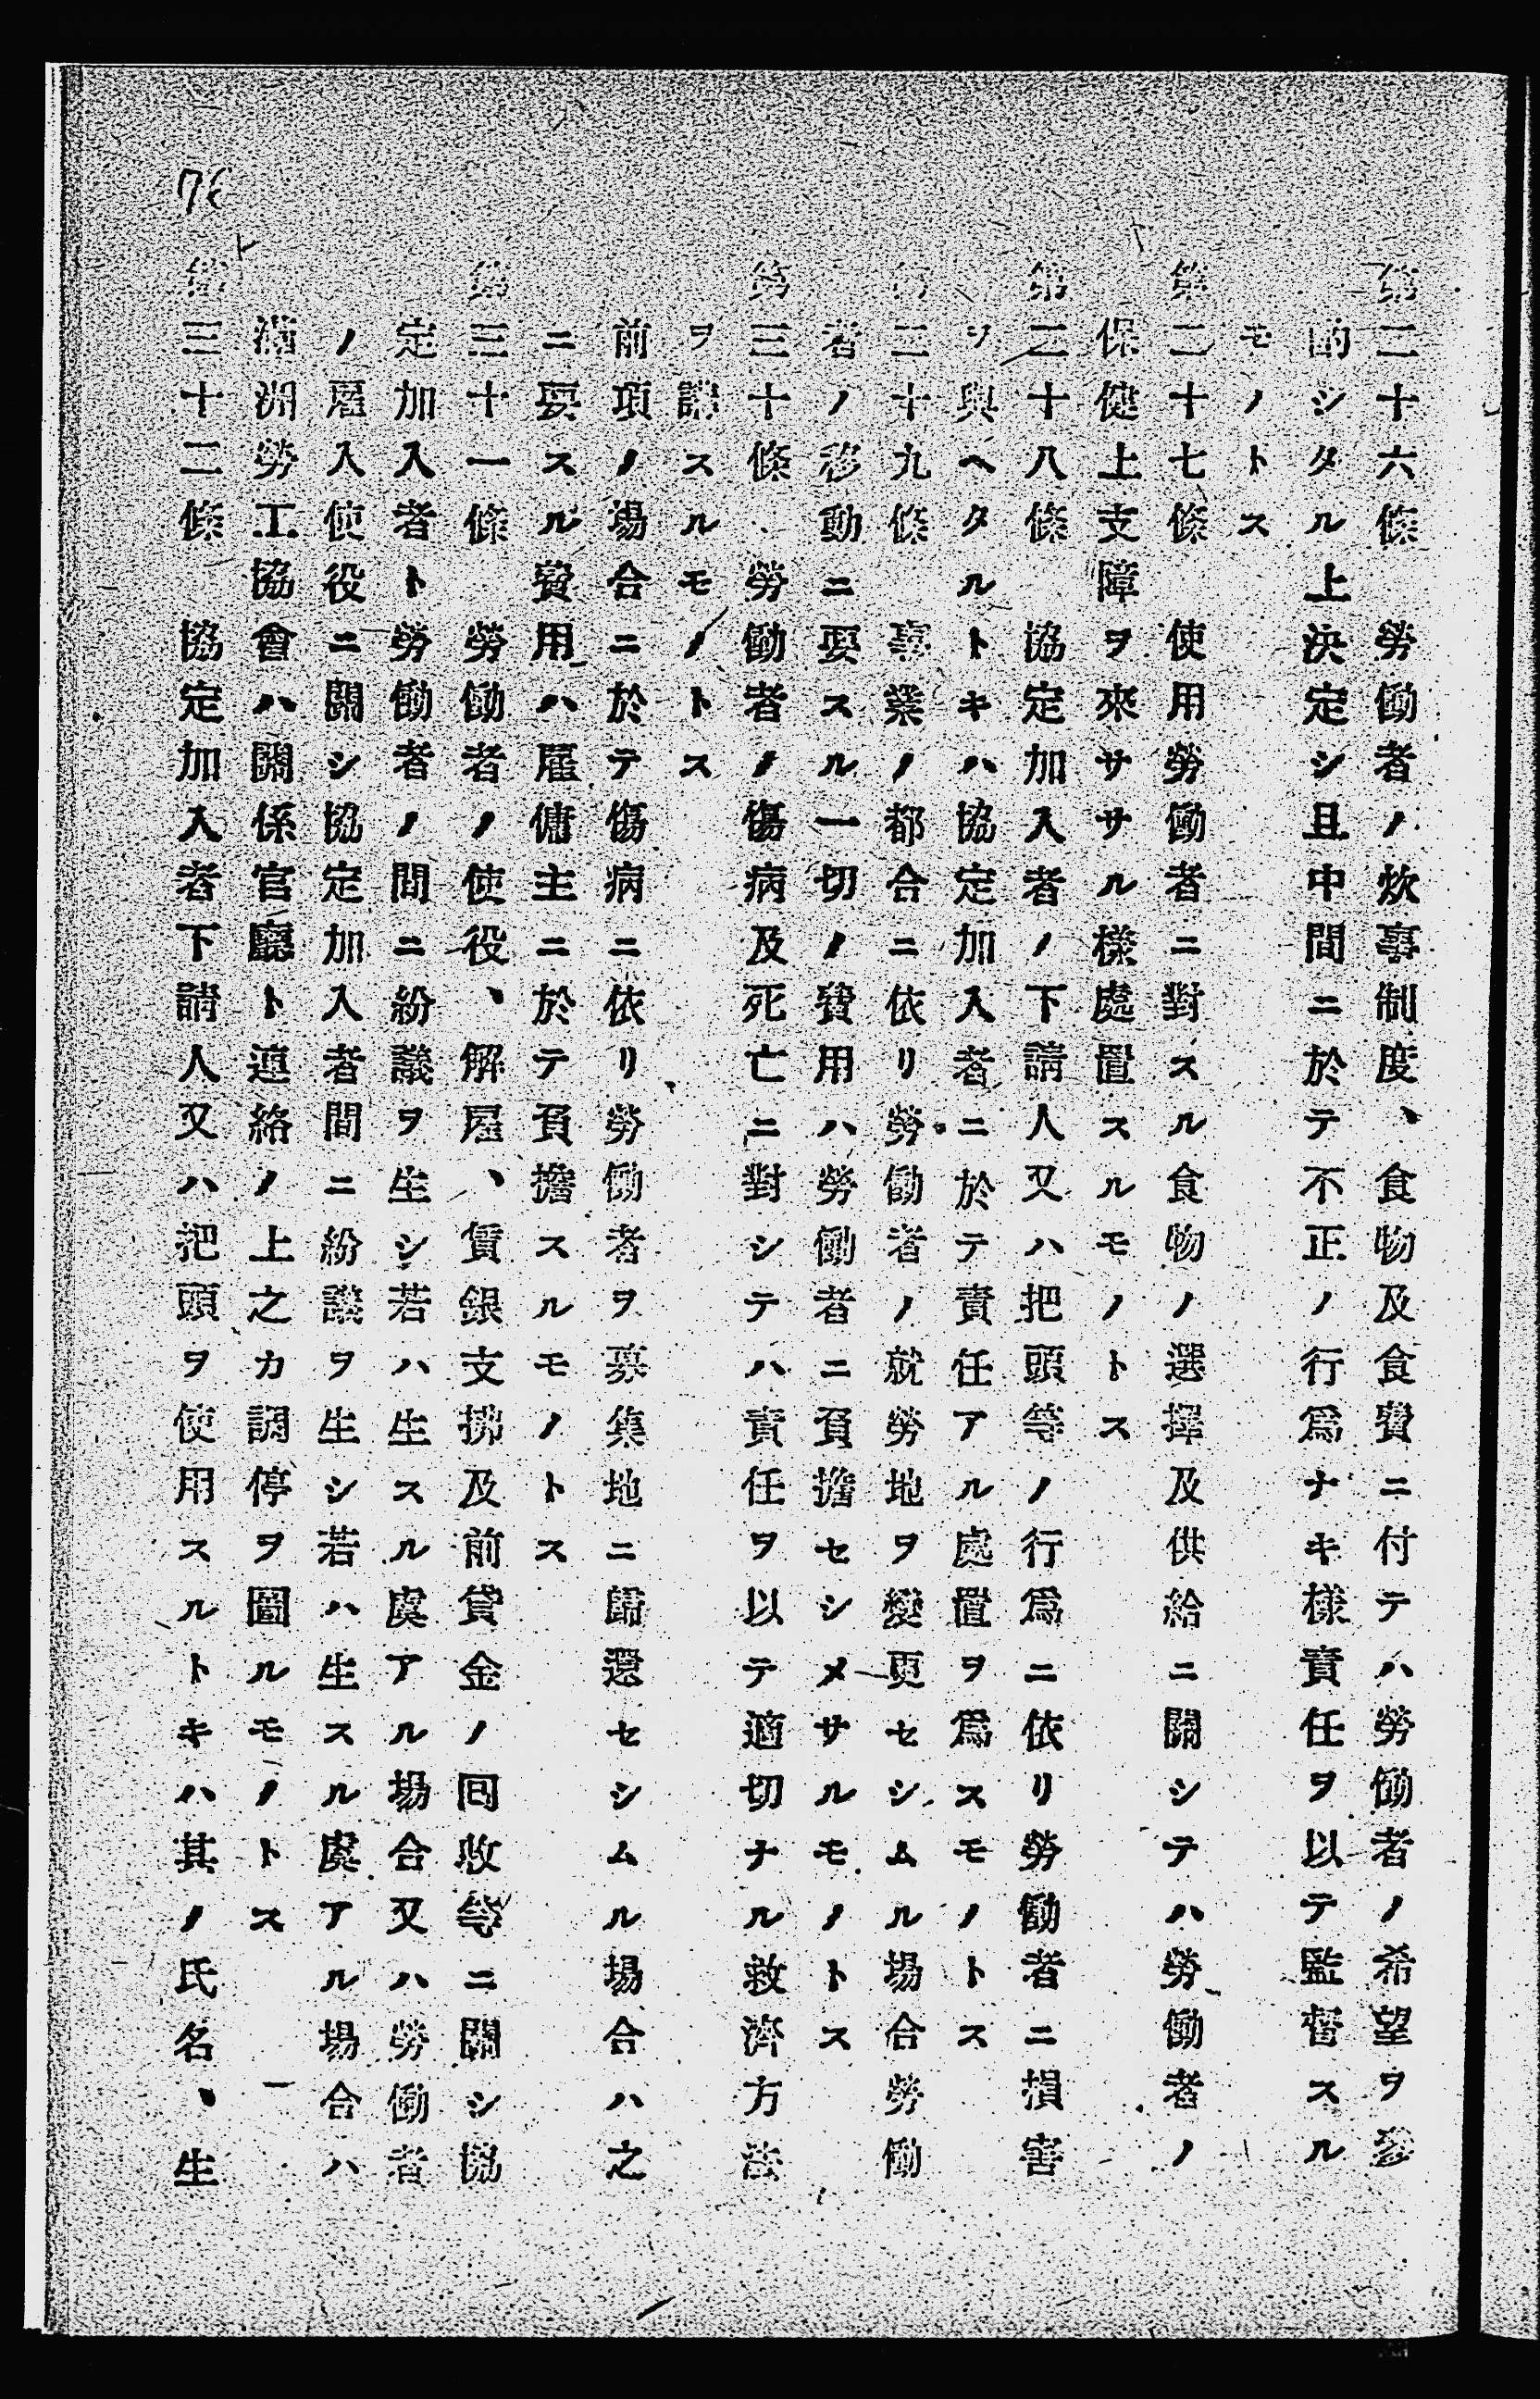 第二十六條　勞働者ノ炊事制度、食物及食費ニ付テハ勞働者ノ希望ヲ參
酌シタル上決定シ且中間ニ於テ不正ノ行爲ナキ樣責任ヲ以テ監督スル
モノトス
第二十七條　使用勞働者ニ對スル食物ノ選擇及供給ニ關シテハ勞働者ノ
保健上支障ヲ來サザル樣處置スルモノトス
第二十八條　協定加入者ノ下請人又ハ把頭等ノ行爲ニ依リ勞働者ニ損害
ヲ與ヘタルトキハ協定加入者ニ於テ責任アル處置ヲ爲スモノトス
第二十九條　事業ノ都合ニ依リ勞働者ノ就勞地ヲ變更セシムル場合勞働
者ノ移動ニ要スル一切ノ費用ハ勞働者ニ負擔セシメサルモノトス
第三十條　勞働者ノ傷病及死亡ニ對シテハ責任ヲ以テ適切ナル救濟方法
ヲ講スルモノトス
前項ノ場合ニ於テ傷病ニ依リ勞働者ヲ募集地ニ歸還セシムル場合ハ之
ニ要スル費用ハ雇傭主ニ於テ負擔スルモノトス
第三十一條　勞働者ノ使役、解雇、賃銀支拂及前貸金ノ回收等ニ關シ協
定加入者ト勞働者ノ間ニ紛議ヲ生シ若ハ生スル虞アル場合又ハ勞働者
ノ雇入使役ニ關シ協定加入者間ニ紛議ヲ生シ若ハ生スル虞アル場合ハ
滿洲勞工協會ハ關係官廳ト連絡ノ上之カ調停ヲ圖ルモノトス
第三十二條　協定加入者下請人又ハ把頭ヲ使用スルトキハ其ノ氏名、生